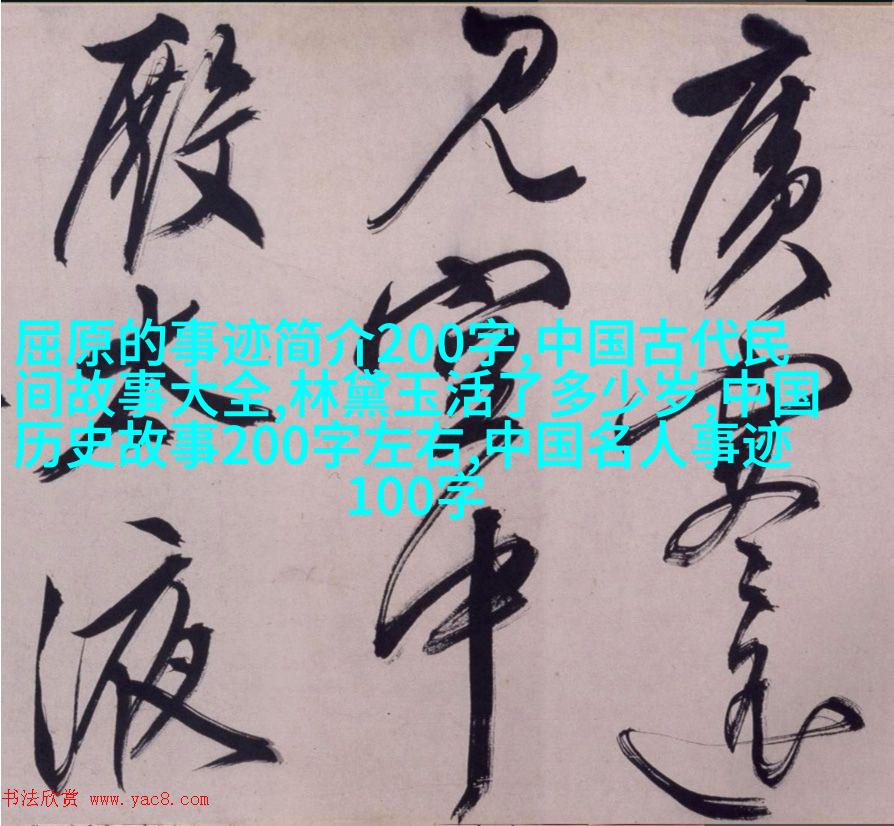 廣寒還
見空中
殿太液
屈原的事迹简介200字,中国古代民
间故事大全,林黛玉活了多少岁,中国
历史故事200字左右,中国名人事迹
100字
书法欣赏 www.yac8.com